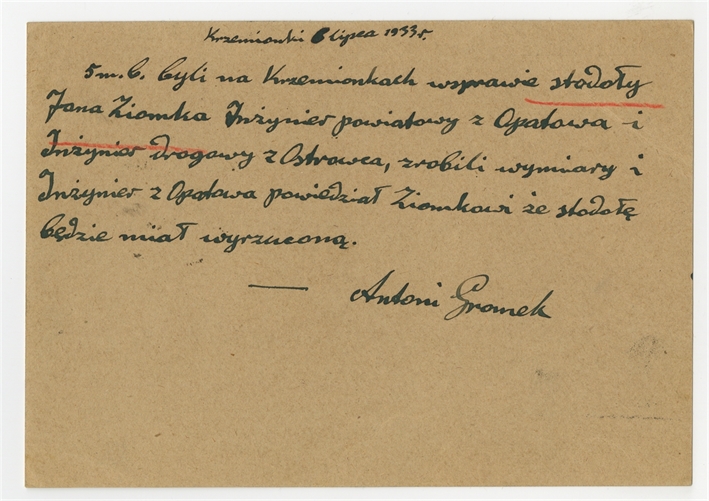 Krzemionki 6 lipca 1933r.
5 m.b. byli na Krzemionkach wsprawie stodoły
Jana Ziomka Inżynier powiatowy z Opatowa i
Inżynier drogowy z Ostrowca, zrobili wymiary i
Inżynier z Opatowa powiedział Ziomkowi że stodołę
będzie miał wyrzuconą.
Antoni Gromek